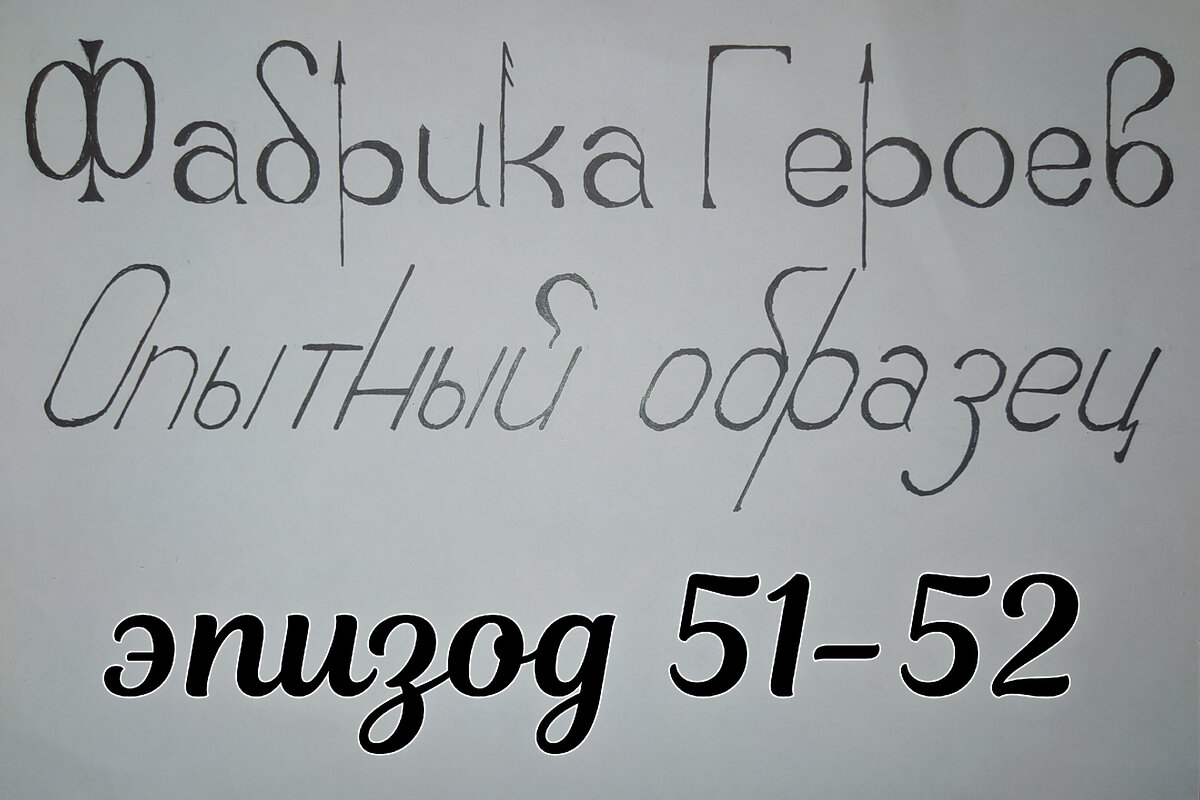 Фабрика Героев
Опытный образец
эпизод 51-52